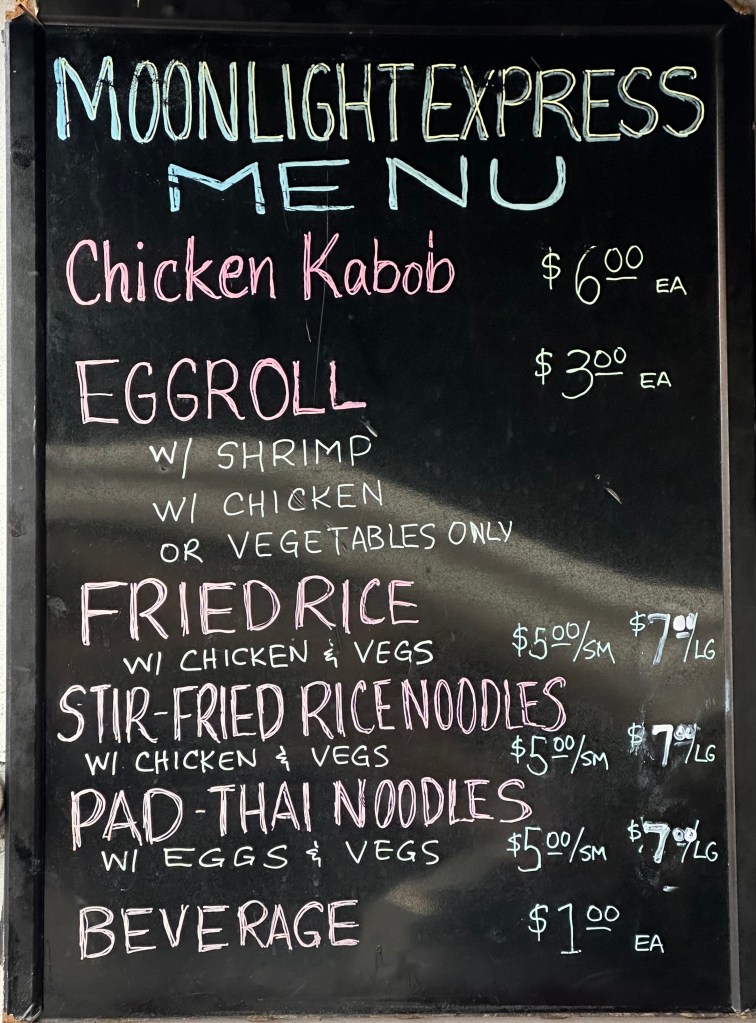 MOONLIGHT EXPRESS
MENU
Chicken Kabob $6.00 EA
EGGROLL $3.00 EA
W/ SHRIMP
W/ CHICKEN
OR VEGETABLES ONLY
FRIED RICE
W/ CHICKEN & VEGS $5.00/SM $7.00/LG
STIR-FRIED RICE NOODLES
W/ CHICKEN & VEGS $5.00/SM $7.00/LG
PAD-THAI NOODLES
W/ EGGS & VEGS $5.00/SM $7.00/LG
BEVERAGE $1.00 EA